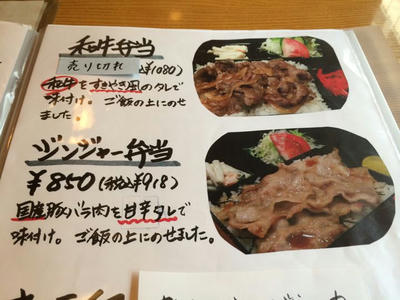 和牛弁当
売り切れ
¥1080)
和牛をすきやき風のタレで
味付け。ご飯の上にのせ
ました。
ジンジャー弁当
¥850(税込¥918)
国産豚バラ肉を甘辛タレで
味付け。ご飯の上にのせました。